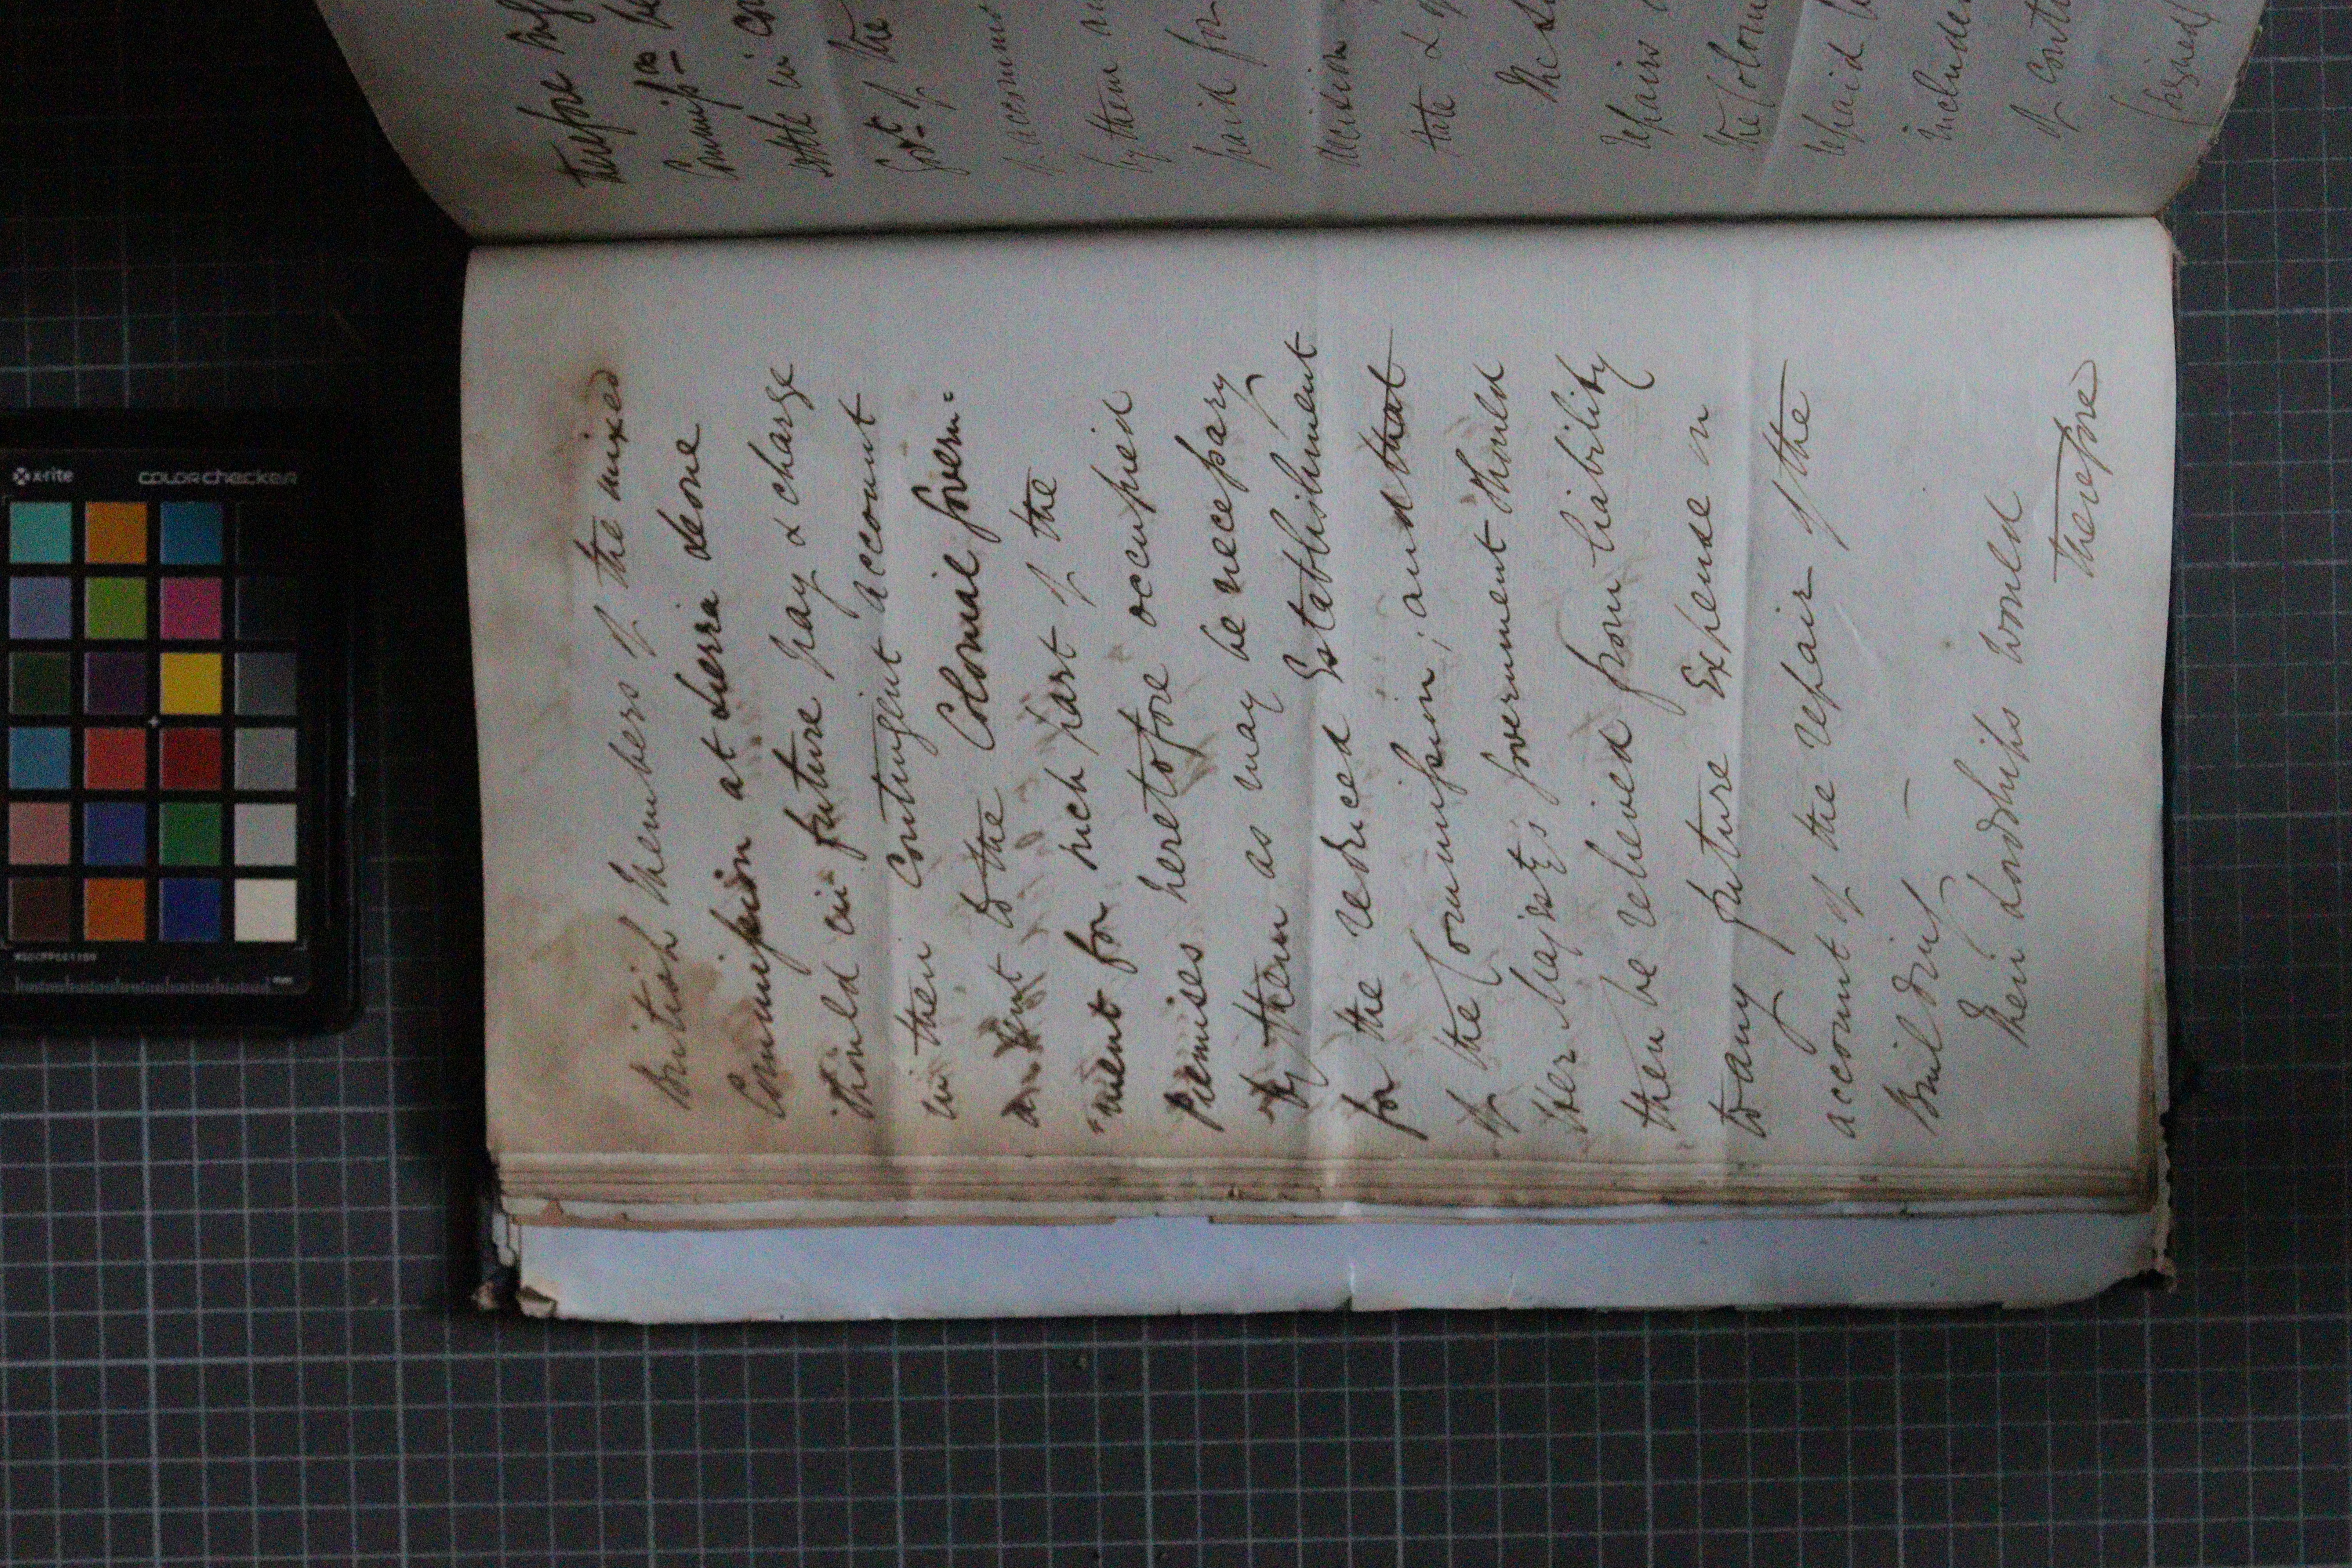 British Members of the mixed
Commission at Sierra Leone
should in future pay & charge
in their Contingent account
a Rent to the Colonial Govern=
"ment for such part of the
Premises heretofore occupied
by them as may be necessary
for the reduced Establishment
of the Commission; and that
Her Majesty's Government should
then be relieved from liability
to any future Expense on
account of the repair of the
Building —
Their Lordships would
therefore
therefore
Commissrs
settle in
Govt of the
account
by them
paid for
decision
state &
The
repairs
the Colon
repaid
included
of Conti
(signed)
x-rite
colorchecker
mm